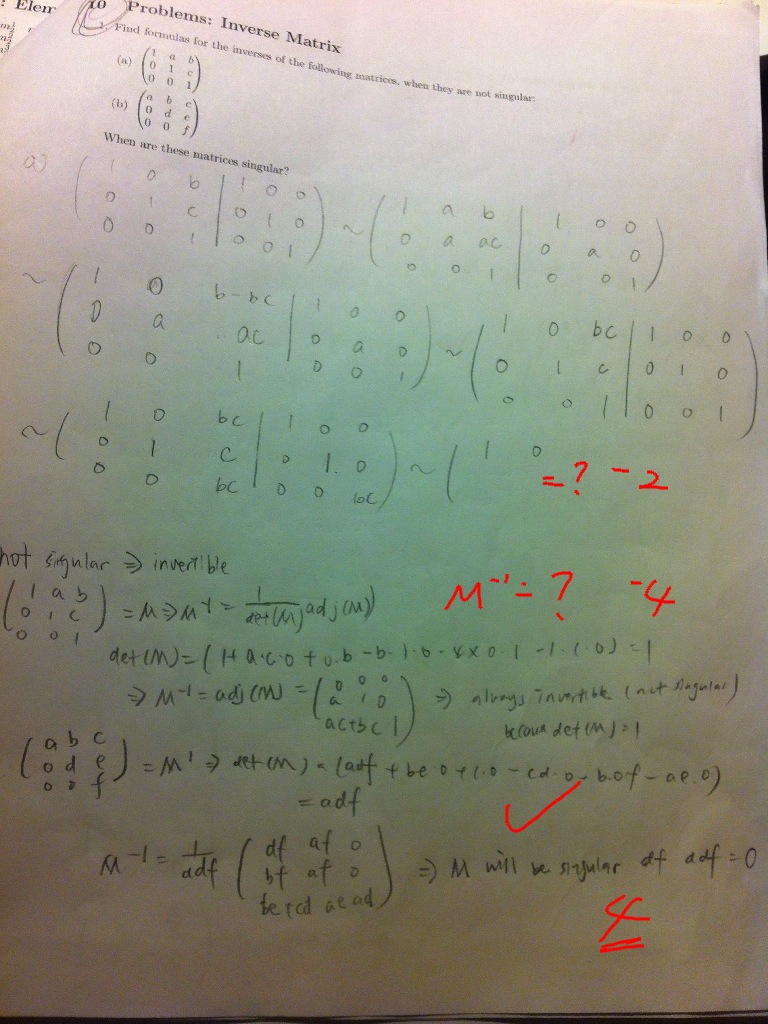 : Elem
10 Problems: Inverse Matrix
1. Find formulas for the inverses of the following matrices, when they are not singular:
(a) ( 1 a b
0 1 c
0 0 1 )
(b) ( a b c
0 d e
0 0 f )
When are these matrices singular?
a) ( 1 0 b | 1 0 0
0 1 c | 0 1 0
0 0 1 | 0 0 1 ) ~ ( 1 a b | 1 0 0
0 a ac | 0 a 0
0 0 1 | 0 0 1 )
~ ( 1 0 b-bc | 1 0 0
0 a ac | 0 a 0
0 0 1 | 0 0 1 ) ~ ( 1 0 bc | 1 0 0
0 1 c | 0 1 0
0 0 1 | 0 0 1 )
~ ( 1 0 bc | 1 0 0
0 1 c | 0 1. 0
0 0 bc | 0 0 bc ) ~ ( 1 0
=? -2
not sigular ⇒ invertible
( 1 a b
0 1 c
0 0 1 ) = M ⇒ M^-1 = 1/det(M) adj(M)
M^-1 = ? -4
det(M) = (1+a·c·0 + 0.b -b.1.0 - 0.1 -1.(.0) = 1
⇒ M^-1 = adj(M) = ( 0 0 0
a 1 0
ac+bc 1 ) ⇒ always invertible (not singular)
det(M)=1
( a b c
0 d e
0 0 f ) = M' ⇒ det(M) = (adf + be 0 + (.0 - cd.0 - b.0f - ae.0)
= adf
M^-1 = 1/adf ( df af 0
bf af 0
be+cd ae ad ) ⇒ M will be singular df adf = 0
4